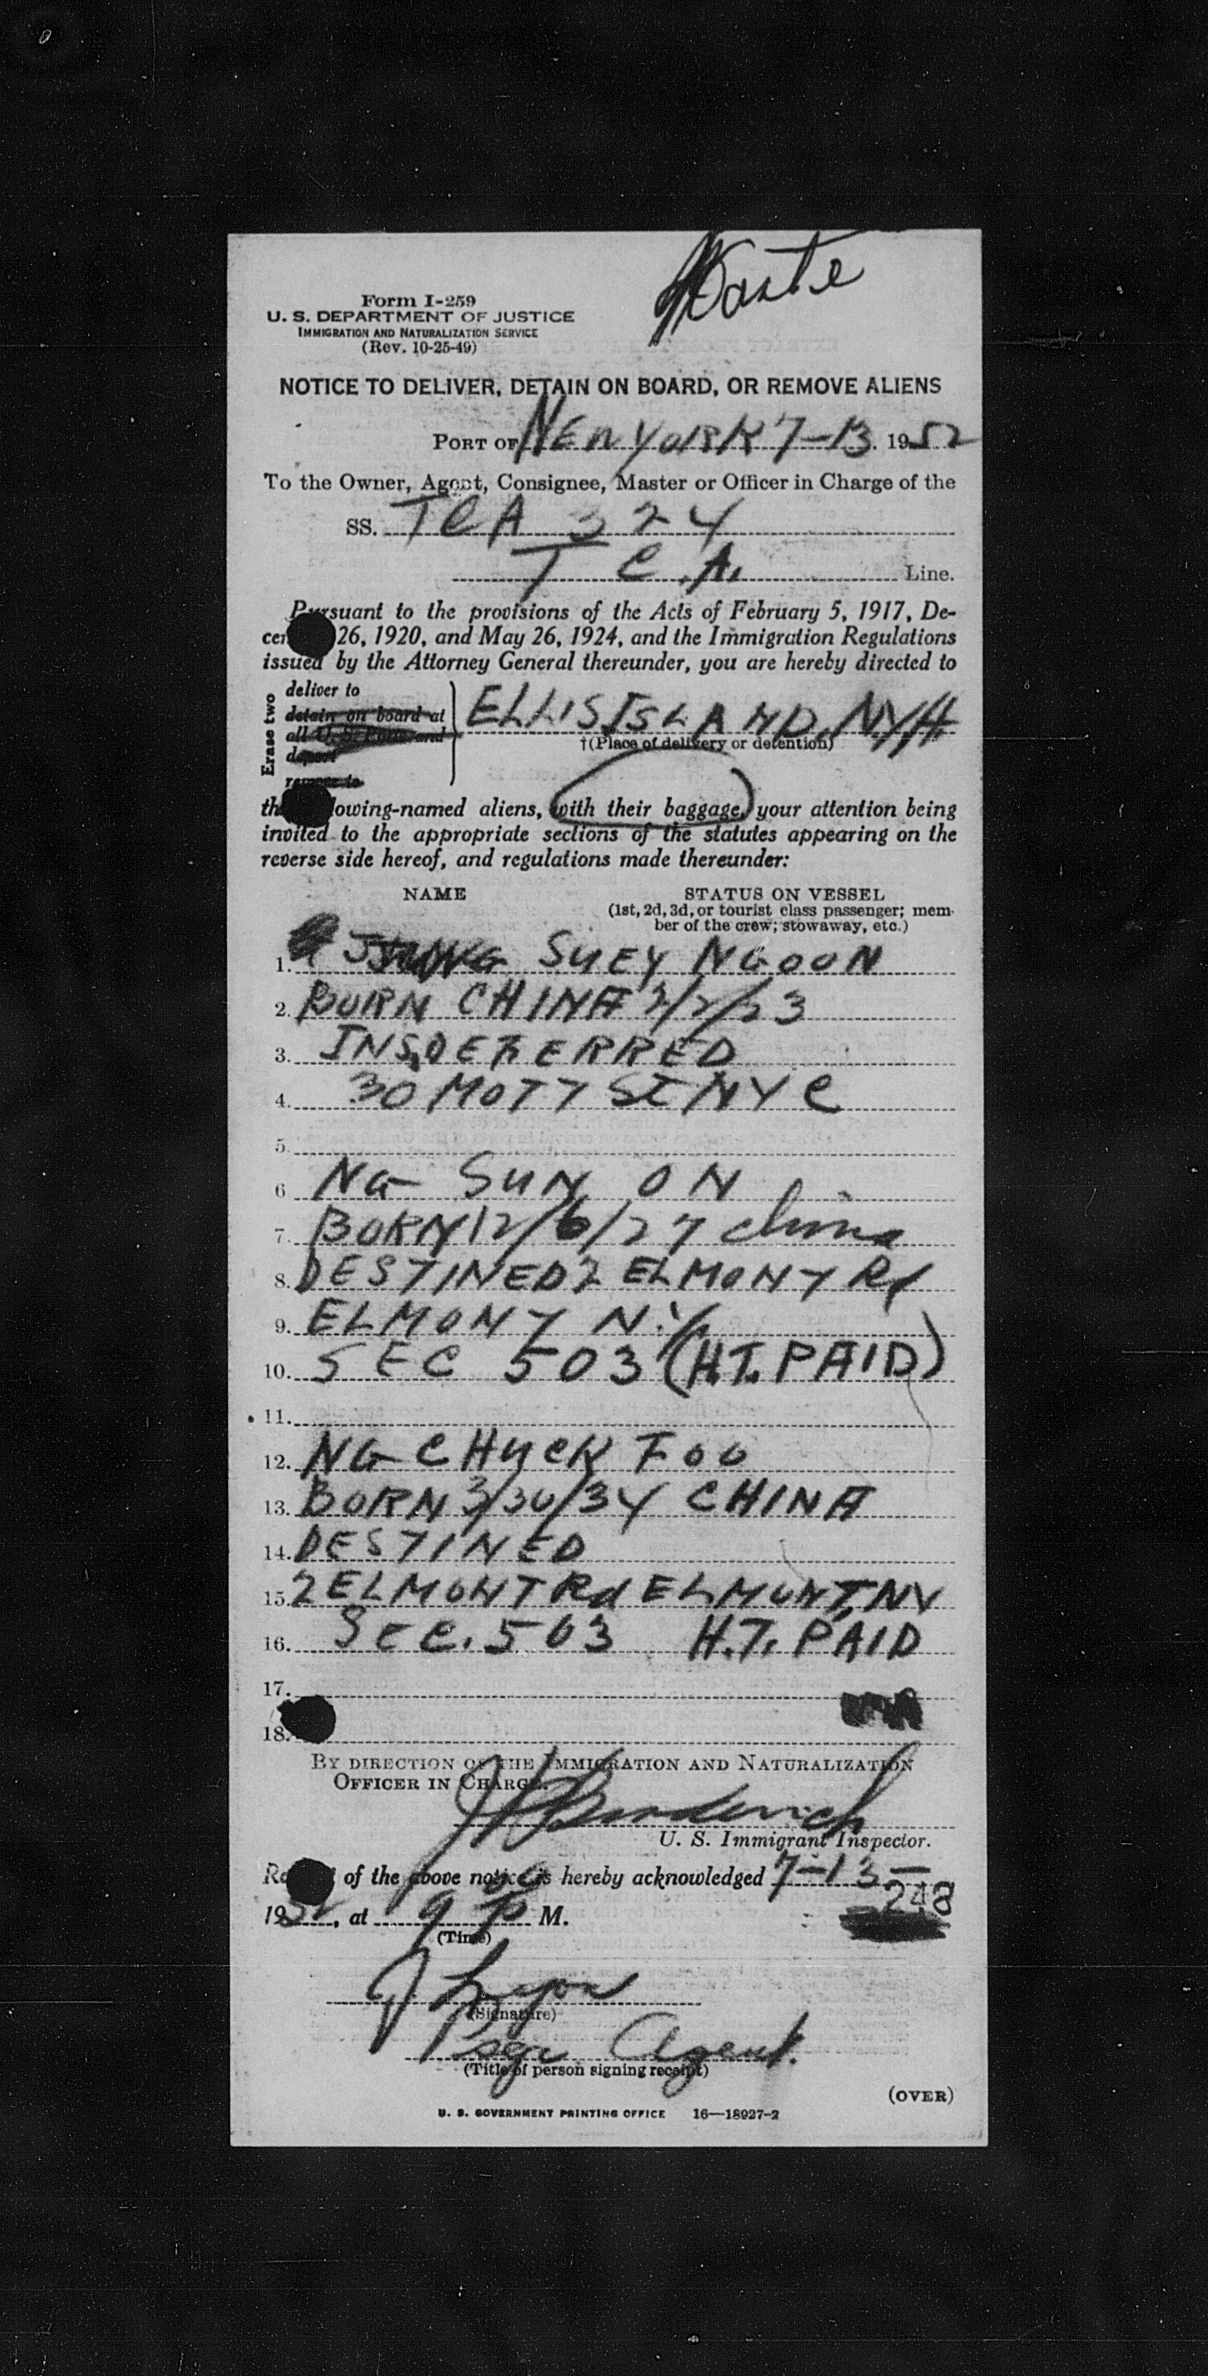 Form I-259
U. S. DEPARTMENT OF JUSTICE
IMMIGRATION AND NATURALIZATION SERVICE
(Rev. 10-25-49)
NOTICE TO DELIVER, DETAIN ON BOARD, OR REMOVE ALIENS
PORT OF NEW YORK 7-13 1952
To the Owner, Agent, Consignee, Master or Officer in Charge of the
SS. TCA 324
T C.A. Line.
Pursuant to the provisions of the Acts of February 5, 1917, De-
26, 1920, and May 26, 1924, and the Immigration Regulations
issued by the Attorney General thereunder, you are hereby directed to
Erase two
deliver to
detain on board at
all U. S. Ports and
deport
remove to
ELLIS ISLAND, N.Y.H.
†(Place of delivery or detention)
lowing-named aliens, with their baggage, your attention being
invited to the appropriate sections of the statutes appearing on the
reverse side hereof, and regulations made thereunder:
NAME STATUS ON VESSEL
(1st, 2d, 3d, or tourist class passenger; mem-
ber of the crew; stowaway, etc.)
1. SUEY NGOON
2. BORN CHINA
3. INS. DEFERRED
4. 30 MOTT ST NYC
5.
6 NG SUN ON
7. BORN 12/6/27 china
8. DESTINED 2 ELMONT Rd
9. ELMONT N.Y.
10. SEC 503 (H.T. PAID)
11.
12. NG CHUCK FOO
13. BORN 3/30/34 CHINA
14. DESTINED
15. 2 ELMONT Rd ELMONT, NY
16. SEC. 503 H.T. PAID
17.
18.
BY DIRECTION OF THE IMMIGRATION AND NATURALIZATION
OFFICER IN CHARGE.
U. S. Immigrant Inspector.
of the above notice is hereby acknowledged 7-13-
248
1952, at 9 P M.
(Time)
(Signature)
Psgr Agent.
(Title of person signing receipt)
(OVER)
U. S. GOVERNMENT PRINTING OFFICE 16—18927-2